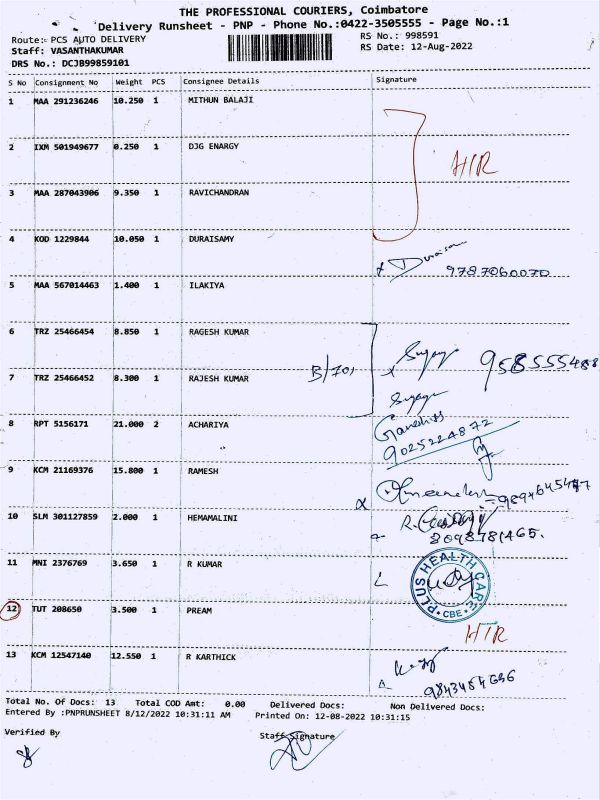 THE PROFESSIONAL COURIERS, Coimbatore
Delivery Runsheet - PNP - Phone No.:0422-3505555 - Page No.:1
Route: PCS AUTO DELIVERY
RS No.: 998591
Staff: VASANTHAKUMAR
RS Date: 12-Aug-2022
DRS No.: DCJB99859101
S No Consignment No Weight PCS Consignee Details Signature
1 MAA 291236246 10.250 1 MITHUN BALAJI
2 IXM 501949677 0.250 1 DJG ENARGY
HTR
3 MAA 287043906 9.350 1 RAVICHANDRAN
4 KOD 1229844 10.050 1 DURAISAMY
Duraisam
9787060070
5 MAA 567014463 1.400 1 ILAKIYA
6 TRZ 25466454 8.850 1 RAGESH KUMAR
B/701
7 TRZ 25466452 8.300 1 RAJESH KUMAR
8 RPT 5156171 21.000 2 ACHARIYA
9025224872
9 KCM 21169376 15.800 1 RAMESH
10 SLM 301127859 2.000 1 HEMAMALINI
8098781465.
11 MNI 2376769 3.650 1 R KUMAR
PLUS HEALTH CARE
CBE
12 TUT 208650 3.500 1 PREAM
HTR
13 KCM 12547140 12.550 1 R KARTHICK
9843454636
Total No. Of Docs: 13 Total COD Amt: 0.00 Delivered Docs: Non Delivered Docs:
Entered By :PNPRUNSHEET 8/12/2022 10:31:11 AM Printed On: 12-08-2022 10:31:15
Verified By Staff Signature